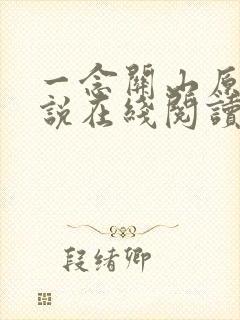 一念關山原
說在綫閱讀
段緒卿